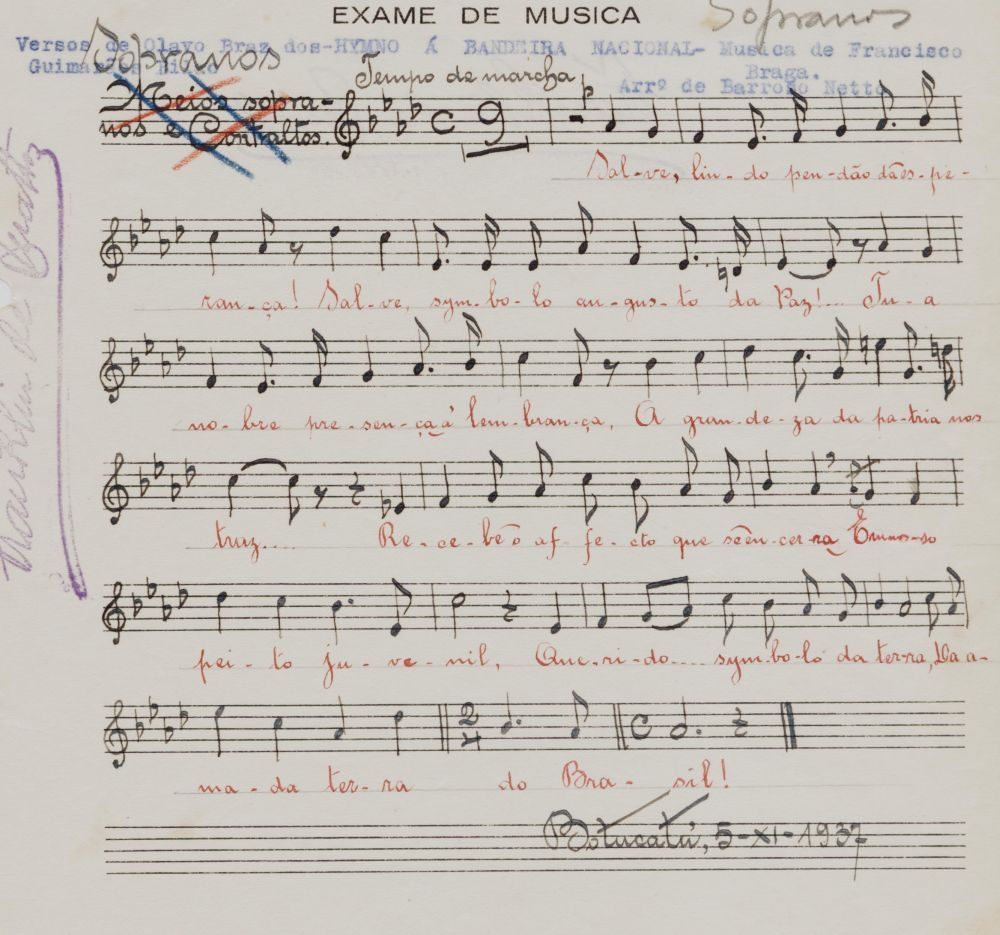 EXAME DE MUSICA
Sopranos
Versos de Olavo Braz dos-HYMNO Á BANDEIRA NACIONAL- Musica de Francisco
Guimarães Bilac Braga.
Sopranos
Arrº de Barrozo Netto
Tempo de marcha
Meios sopra-
nos e Contraltos.
C 9 p
Sal-ve, lin-do pen-dão dães-pe-
ran-ça! Sal-ve, sym-bo-lo au-gus-to da Paz!... Tu-a
no-bre pre-sen-ça á lem-bran-ça, A gran-de-za da pa-tria nos
traz.... Re-ce-be o af-fe-cto que seên-cer-ra Em nos-so
pei-to ju-ve-nil, Que-ri-do.... sym-bo-lo da ter-ra, Da a-
2
4 C
ma-da ter-ra do Bra-sil!
Botucatú, 5-XI-1937